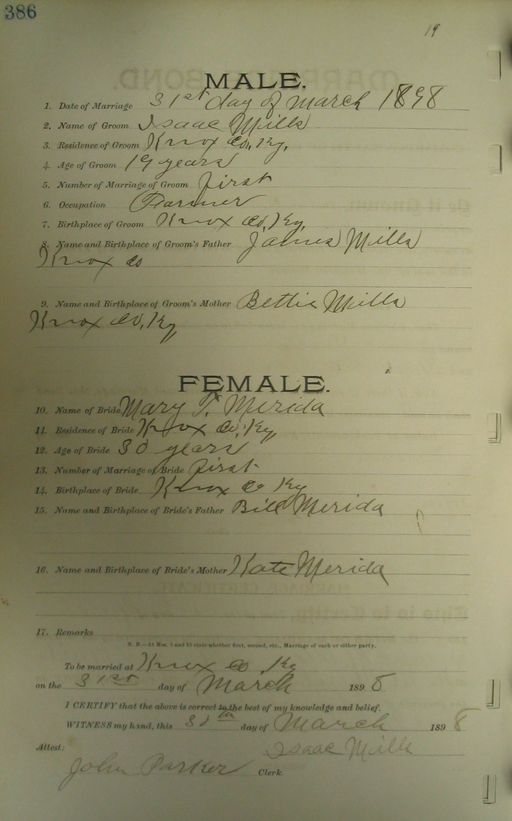 386
19
MALE.
1. Date of Marriage 31st day of March 1898
2. Name of Groom Isaac Mills
3. Residence of Groom Knox Co, Ky,
4. Age of Groom 19 years
5. Number of Marriage of Groom first
6. Occupation Farmer
7. Birthplace of Groom Knox Co, Ky,
8. Name and Birthplace of Groom's Father James Mills
Knox Co
9. Name and Birthplace of Groom's Mother Bettie Mills
Knox Co, Ky
FEMALE.
10. Name of Bride Mary F. Merida
11. Residence of Bride Knox Co, Ky
12. Age of Bride 30 years
13. Number of Marriage of Bride first
14. Birthplace of Bride Knox Co Ky
15. Name and Birthplace of Bride's Father Bill Merida
16. Name and Birthplace of Bride's Mother Kate Merida
17. Remarks
N. B.—At Nos. 5 and 13 state whether first, second, etc., Marriage of each or either party.
To be married at Knox Co Ky
on the 31st day of March 1898
I CERTIFY that the above is correct to the best of my knowledge and belief.
WITNESS my hand, this 30th day of March 1898
Attest: Isaac Mills
John Parker Clerk